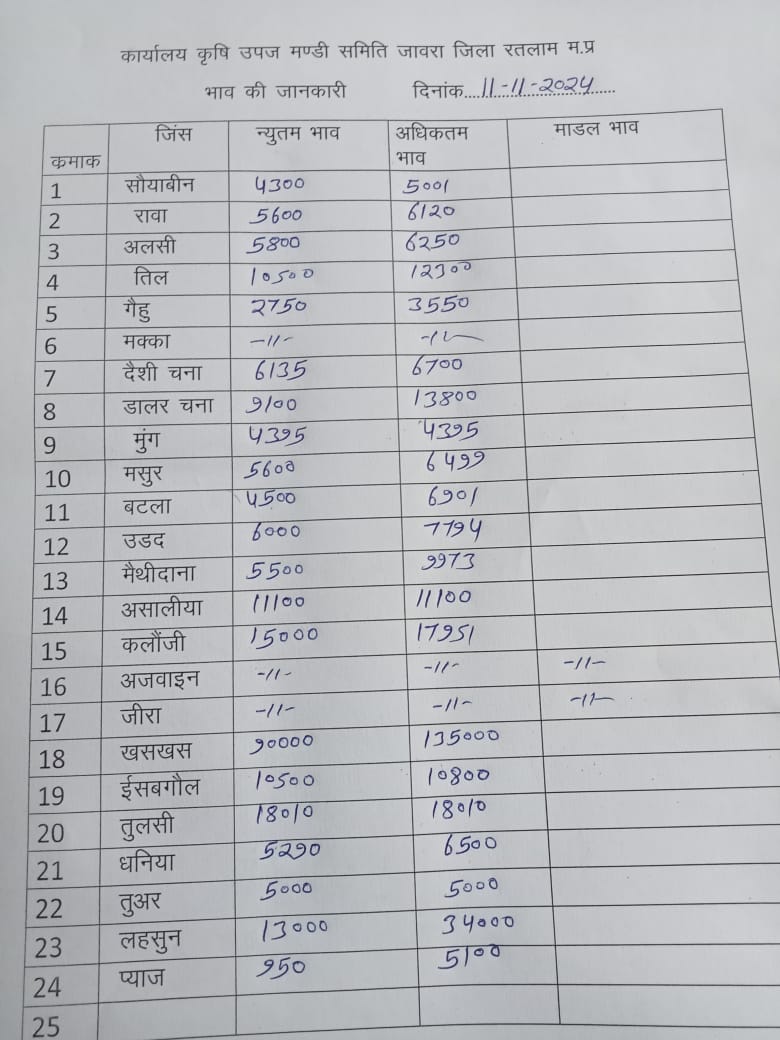 कार्यालय कृषि उपज मण्डी समिति जावरा जिला रतलाम म.प्र
भाव की जानकारी दिनांक....11-11-2024......
क्रमाक जिंस न्युतम भाव अधिकतम भाव माडल भाव
1 सौयाबीन 4300 5001
2 रावा 5600 6120
3 अलसी 5800 6250
4 तिल 10500 12300
5 गैहु 2750 3550
6 मक्का -11- -11-
7 दैशी चना 6135 6700
8 डालर चना 9100 13800
9 मुंग 4395 4395
10 मसुर 5600 6499
11 बटला 4500 6901
12 उडद 6000 7794
13 मैथीदाना 5500 9973
14 असालीया 11100 11100
15 कलौंजी 15000 17951
16 अजवाइन -11- -11- -11-
17 जीरा -11- -11- -11-
18 खसखस 90000 135000
19 ईसबगौल 10500 10800
20 तुलसी 18010 18010
21 धनिया 5290 6500
22 तुअर 5000 5000
23 लहसुन 13000 34000
24 प्याज 950 5100
25